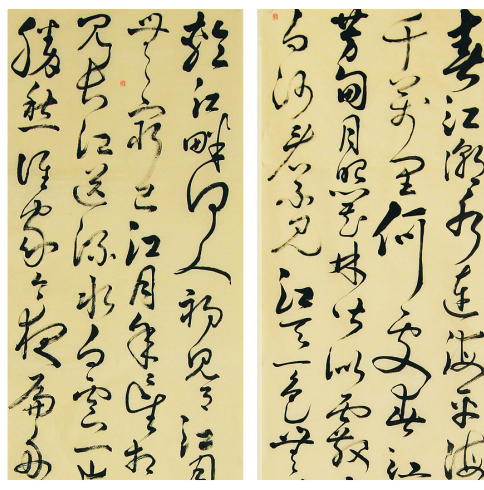 春江潮水連海平海
千萬里何處春江
芳甸月照花林皆似霰
白沙看不見江天一色無
輪江畔何人初見月江月
無窮已江月年年望相
見長江送流水白雲一
勝愁誰家今夜扁舟